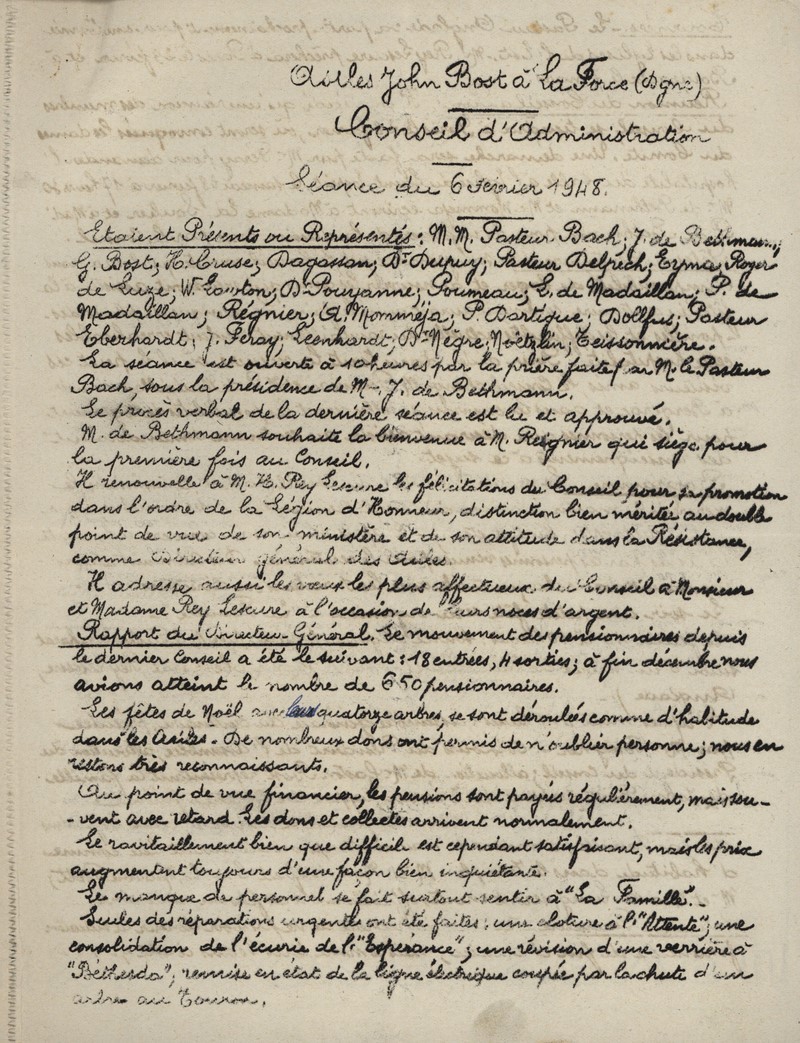 Asiles John Bost à La Force (Dgne)
Conseil d'Administration
Séance du 6 Février 1948.
Etaient Présents ou Représentés : M.M. Pasteur Bach ; J. de Bethmann ;
G. Bost ; H. Cruse ; Dagassan ; Dr Dupuy ; Pasteur Delpech ; Eyma ; Roger
de Luze ; W. Lawton ; Dr Pouyanne ; Poumeau ; E. de Madaillan ; P. de
Madaillan ; Régnier ; A. Momméja ; P. Dartigue ; Dollfus ; Pasteur
Eberhardt ; J. Feray ; Leenhardt ; Dr Nègre ; Nœtzlin ; Teissonnière.
La séance est ouverte à 10 heures par la prière faite par M. le Pasteur
Bach, sous la présidence de M. J. de Bethmann.
Le procès verbal de la dernière séance est lu et approuvé.
M. de Bethmann souhaite la bienvenue à M. Regnier qui siège pour
la première fois au Conseil.
Il renouvelle à M. H. Rey Lescure les félicitations du Conseil pour sa promotion
dans l'ordre de la Légion d'Honneur, distinction bien méritée au double
point de vue de son ministère et de son attitude dans la Résistance,
comme Directeur général des Asiles.
Il adresse aussi les vœux les plus affectueux du Conseil à Monsieur
et Madame Rey Lescure à l'occasion de leurs noces d'argent.
Rapport du Directeur Général. Le mouvement des pensionnaires depuis
le dernier Conseil a été le suivant : 18 entrées, 4 sorties ; à fin décembre nous
avions atteint le nombre de 650 pensionnaires.
Les fêtes de Noël avec leurs quatorze arbres, se sont déroulées comme d'habitude
dans les Asiles. De nombreux dons ont permis de n'oublier personne ; nous en
restons très reconnaissants.
Au point de vue financier, les pensions sont payées régulièrement, mais sou-
-vent avec retard. Les dons et collectes arrivent normalement.
Le ravitaillement bien que difficile est cependant satisfaisant, mais les prix
augmentent toujours d'une façon bien inquiétante.
Le manque de personnel se fait surtout sentir à "La Famille".
Seules des réparations urgentes ont été faites : une cloture à l'"Attente" ; une
consolidation de l'écurie de l'"Esperance" ; une révision d'une verrière à
"Bethesda" ; remise en état de la ligne électrique coupée par la chute d'un
arbre au